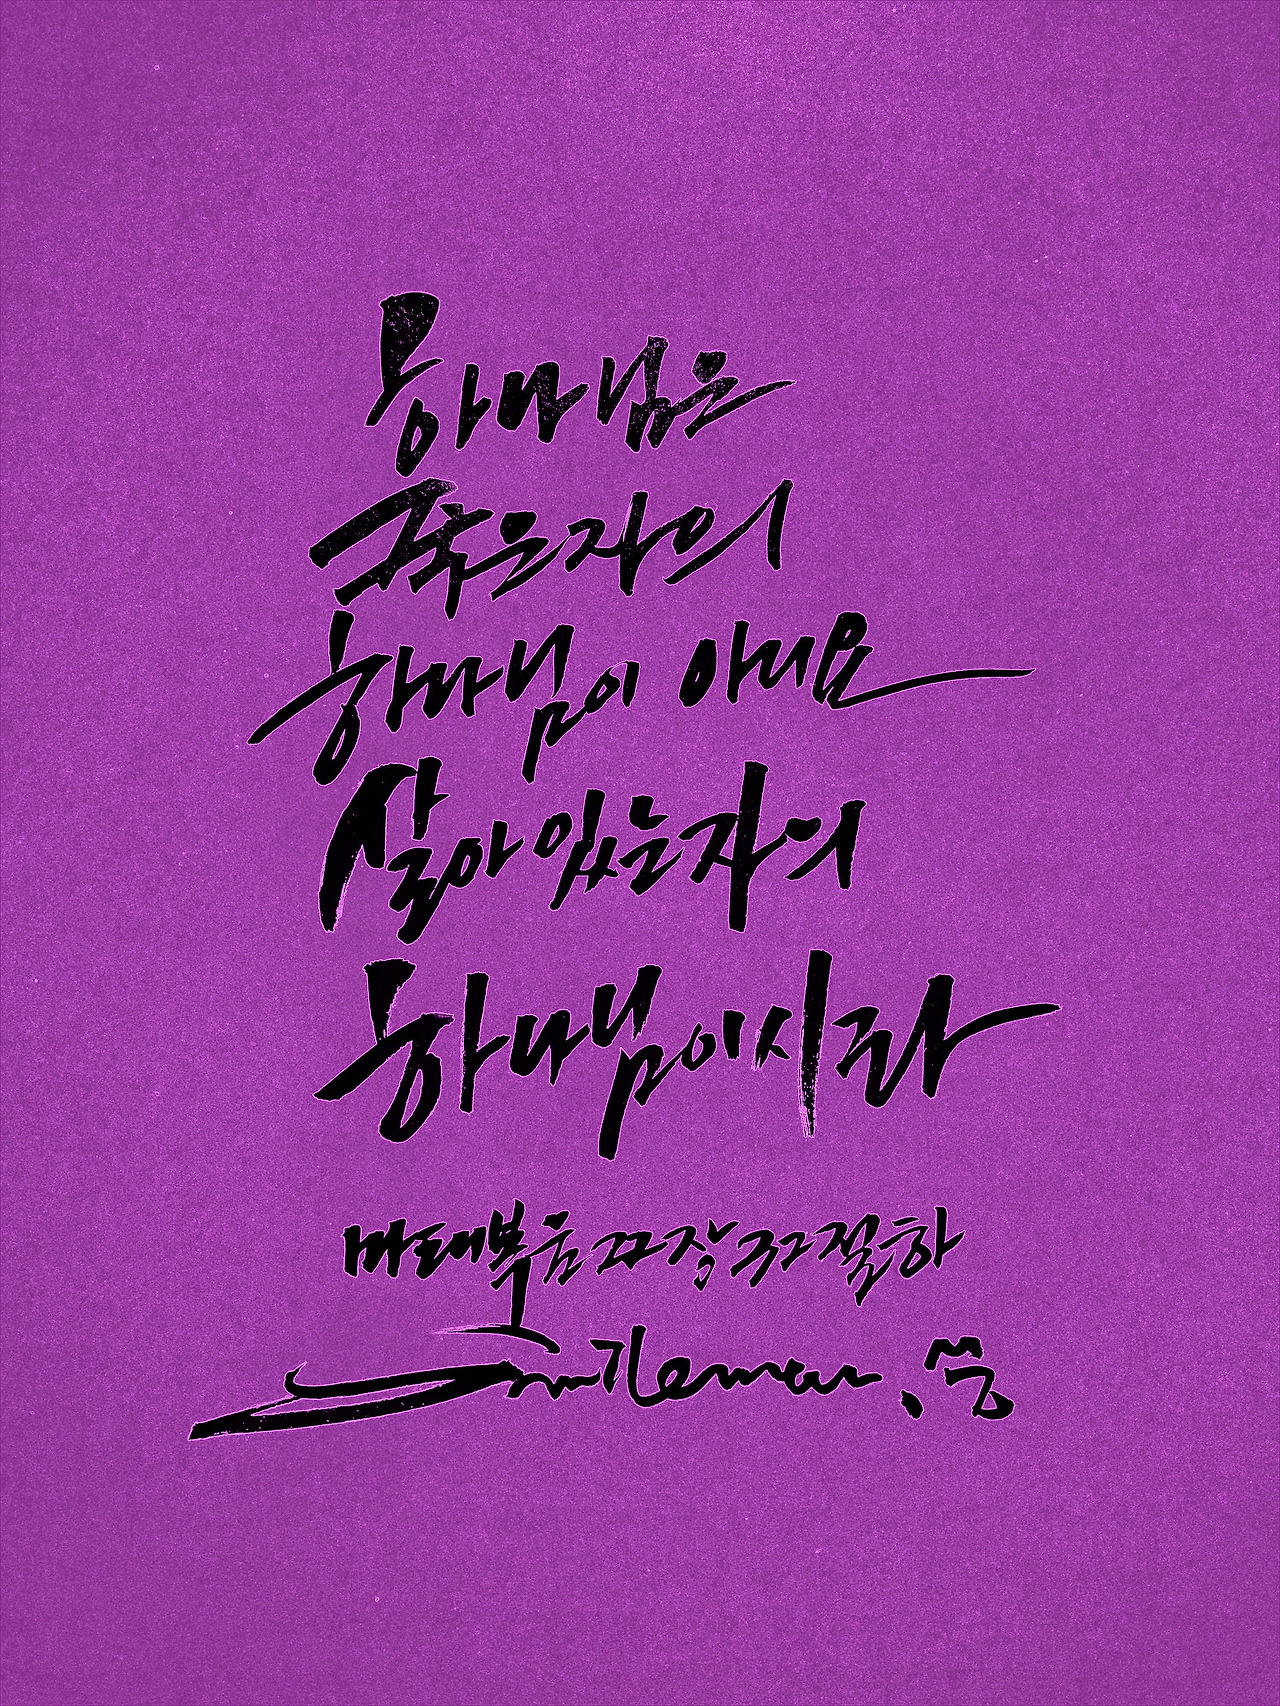 하나님은
죽은 자의
하나님이 아니요
살아 있는 자의
하나님이시라
마태복음 22장 32절 하
Smileman.